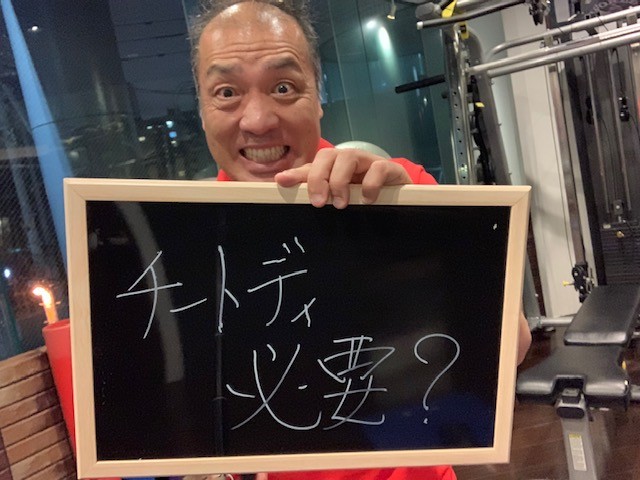 チートディ
必要?